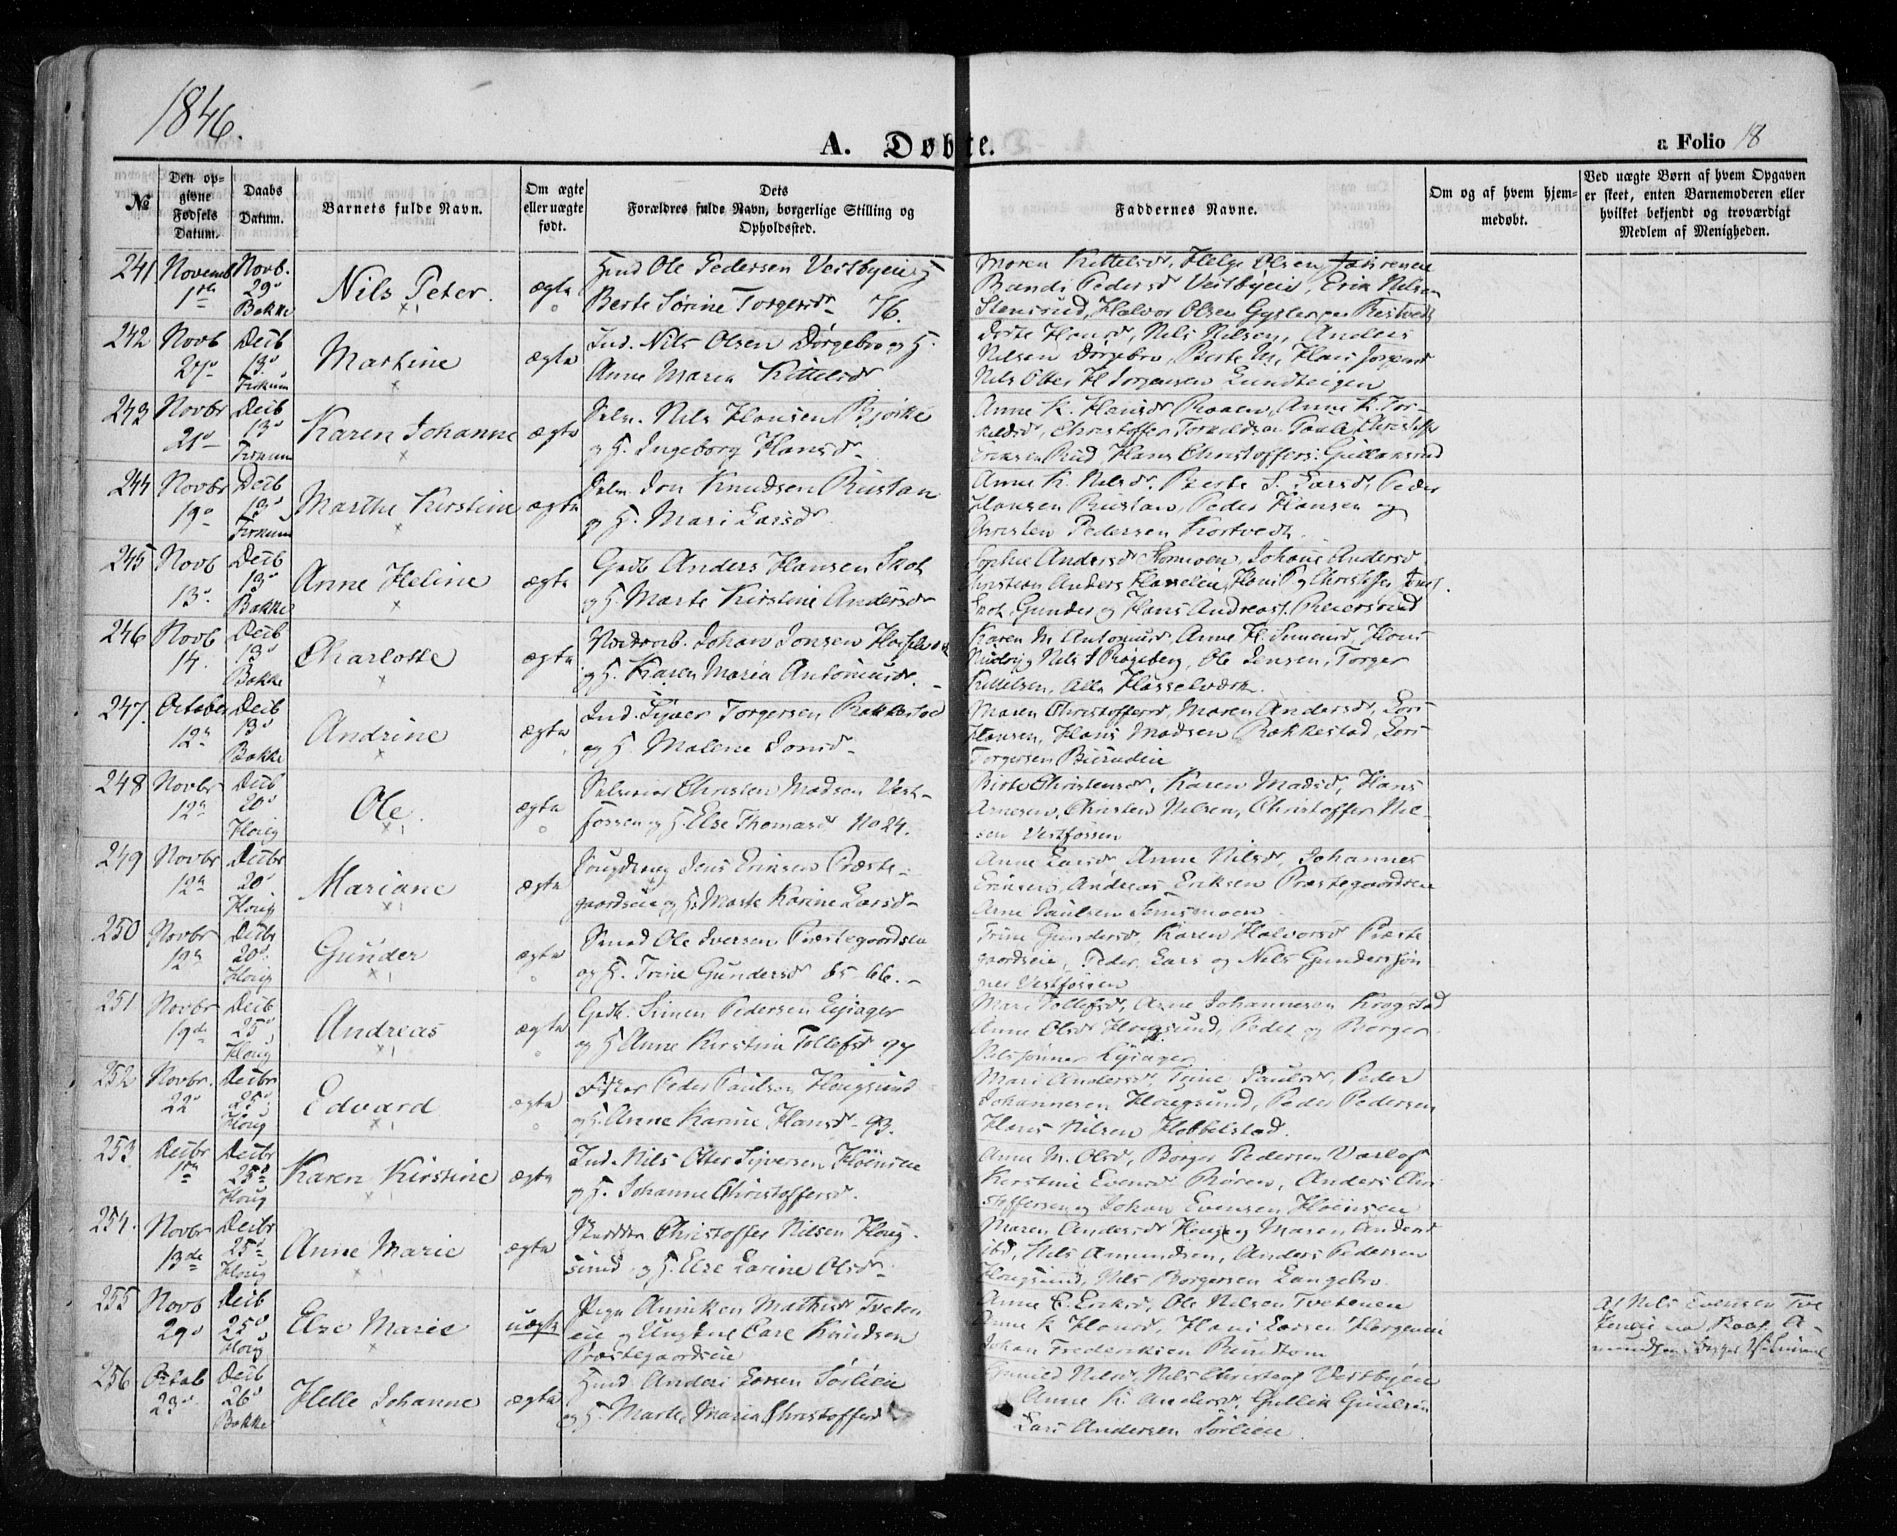 1846.
A. Døbte.
a Folio 18
№
Den opgivne Fødsels Datum.
Daabs Datum.
Barnets fulde Navn.
Om ægte eller uægte født.
Dets Forældres fulde Navn, borgerlige Stilling og Opholdssted.
Faddernes Navne.
Om og af hvem hjemmedøbt.
Ved uægte Børn af hvem Opgaven er skeet, enten Barnemoderen eller hvilket bekjendt og troværdigt Medlem af Menigheden.
241 Novemb 1ste Novb. 29de Bakke Nils Peter. ægte
Huusd Ole Pedersen Vestbyeie og H
Berte Sørine Torgersd. 76.
Maren Kittelsd, Helge Olsen
Pedersd Vestbyeie, Erik Nilsen
Stensrud, Halvor Olsen
242 Novb 27de Decb 13de Fiskum Martine ægte
Ind. Nils Olsen Dørgebro og H.
Anne Maria Kittelsd
Dorte Hansd, Nils Nilsen, Anders
Nilsen Dørgebro, Berte M., Hans Jørgensd
Nils Otter H Jørgensen Lundteigen
243 Novbr 21de Decb 13de Fiskum Karen Johanne ægte
Selv. Nils Hansen Bjørke
og H. Ingeborg Hansd.
Anne K. Hansd Raaen, Anne K. Tor-
keldsd, Christoffer Torkeldsen
Eriksen Rud, Hans Christoffers. Gullaksrud
244 Novbr 19de Decb 13de Fiskum Marthe Kirstine ægte
Selv. Jon Knudsen Rustan
og H. Mari Larsd.
Anne K. Nilsd. Berte S. Larsd, Peder
Hansen Rustan, Peder Hansen og
Christen Pedersen Kortvedt.
245 Novb 13de Decb 13de Bakke Anne Heline ægte
Gadb Anders Hansen Skot
og H. Marte Kirstine Andersd
Sophie Andersd Sommoen, Johane Andersd
Skot, Gunder og Hans Andreas. Reiersrud
246 Novb 14. Decb 13de Bakke Charlotte ægte
Johan Jonsen Hasselværk
og H. Karen Maria Antoniusd.
Karen M Antoniusd, Anne H. Simensd, Hans
Nils S Røgeberg, Ole Jensen, Torger
Kittelsen, Alle Hasselværk.
247. October 12te Decb 13de Bakke Andrine ægte
Ind. Syver Torgersen Rakkestad
og H. Malene Jonsd.
Maren Christoffersd, Maren Andersd, Lars
Hansen, Hans Madsen Rakkestad, Lars
Torgersen
248 Novbr 12te Decb 20de Houg Ole. ægte
Selveier Christen Madsen Vest-
fossen og H. Else Thomasd No 24.
Birte Christensd, Karen Madsd, Hans
Arnesen, Christen Nilsen, Christoffer Nil-
sen Vestfossen
249 Novbr 12te Decbr 20de Houg Mariane ægte
Jens Eriksen Præste-
gaardseie og H. Marte Karine Larsd
Anne Larsd Anne Nilsd, Johannes
Eriksen, Andreas Eriksen Præstegaardseie
Arne Paulsen Semsmoen
250 Novbr 12te Decbr 20de Houg Gunder ægte
Smed Ole Iversen Præstegaardseie
og H. Trine Gundersd 65 66.
Trine Gundersd, Karen Halvorsd Præste
gaardseie, Peder, Lars og Nils Gundersøn
ner Vestfossen
251 Novbr 19de Decb 25de Houg Andreas ægte
Gadb. Simen Pedersen Eyiager
og H Anne Kirstine Tollefsd 97
Mari Tollefsd, Arne Johannesen Krogstad
Anne Olsd Hougsund, Peder og Borger
Nilssønner Eyiager
252 Novbr. 22de Decbr 25de Houg Edvard ægte
Peder Paulsen Hougsund
og H. Anne Karine Hansd. 93.
Mari Andersd, Trine Paulsd, Peder
Johannesen Hougsund, Peder Pedersen
Hans Nilsen Hobbelstad.
253 Decbr 1ste Decbr 25de Houg Karen Kirstine ægte
Ind. Nils Otter Syversen Høensie
og H. Johanne Christoffersd.
Anne M. Olsd, Borger Pedersen Varlof
Kerstine Evensd Røren, Anders Chri-
stoffersen og Johan Evensen Høensen
254. Novbr 13de Decbr 25de Houg Anne Marie ægte
Christoffer Nilsen Houg-
sund og H. Else Larine Olsd
Maren Andersd Houg og Maren Andersd
ibd, Nils Amundsen, Anders Pedersen
Hougsund, Nils Borgersen Langebro.
255 Novb 29de Decb 25de Houg Else Marie uægte
Pige Anniken Mathisd Tveten
eie og Ungkarl Carl Knudsen
Præstegaardseie
Anne E. Eriksd, Ole Nilsen Tvetenen
Anne K Hansd, Hans Larsen
Johan Frederiksen
Af Nils Evensen Tve
teneie
256 Octob 23de Decb 26de Bakke Helle Johanne ægte
Huusd Anders Larsen Sørlieie
og H. Marte Maria Christoffersd
Gunild Nilsd, Nils Christens Vestbyeie
Anne K. Andersd, Gullik Gulsen
Lars Andersen Sørlieie.